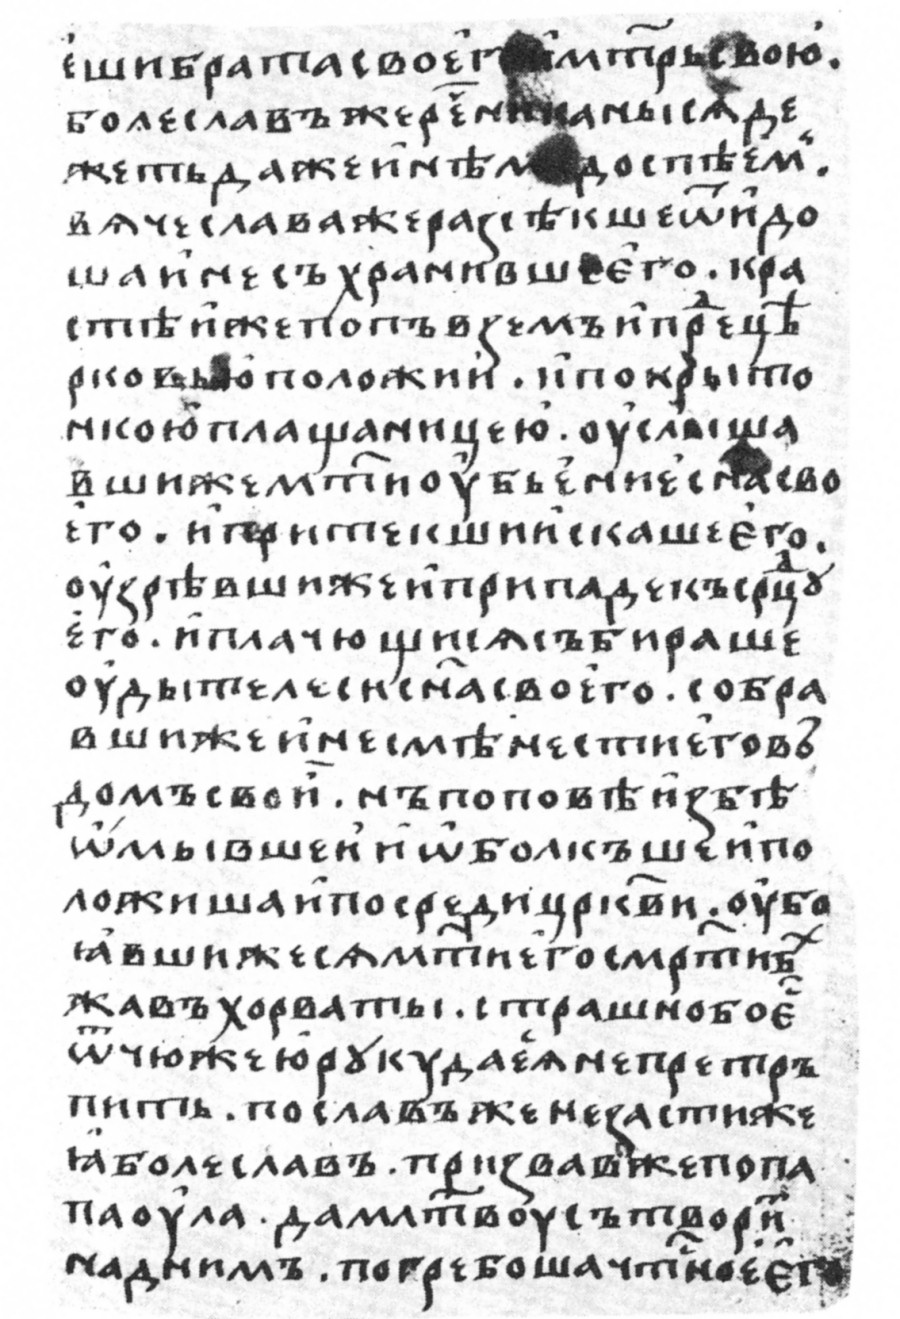 ешибратасвоег имт҃рьсвою.
болеславъжереч҃никанысѧде
жетьдажеинѣм доспѣем.
вѧчеславажеразсѣкшеѿидо
шаинесъхранившеєго. кра
стѣижепопъвземъипрⷣецѣ
рковьюположии. ипокрыто
нкоюплащаницею. оуслыша
вшижемт҃иоубьениесн҃асво
его. ипритекшиискашеєго.
оузрѣвшижеиприпадекъсрⷣцꙋ
его. иплачющисѧсъбираше
оудытелесисн҃асвоего. собра
вшижеинесмѣнестиеговъ
домъсвои. нъпоповѣизбѣ
ѡмывшеииѡболкъшеипо
ложишаипосредицркв҃и. оубо
ꙗвшижесѧмт҃иегосмрт҃ибѣ
жавъхорваты. страшнобоє
ѿчюжеюрꙋкудаеѧнепретръ
пить. пославъженезастиже
ꙗболеславъ. призвавъжепопа
паоула. дамлт҃воусътвори
наднимъ. погребошачтн҃оеєго